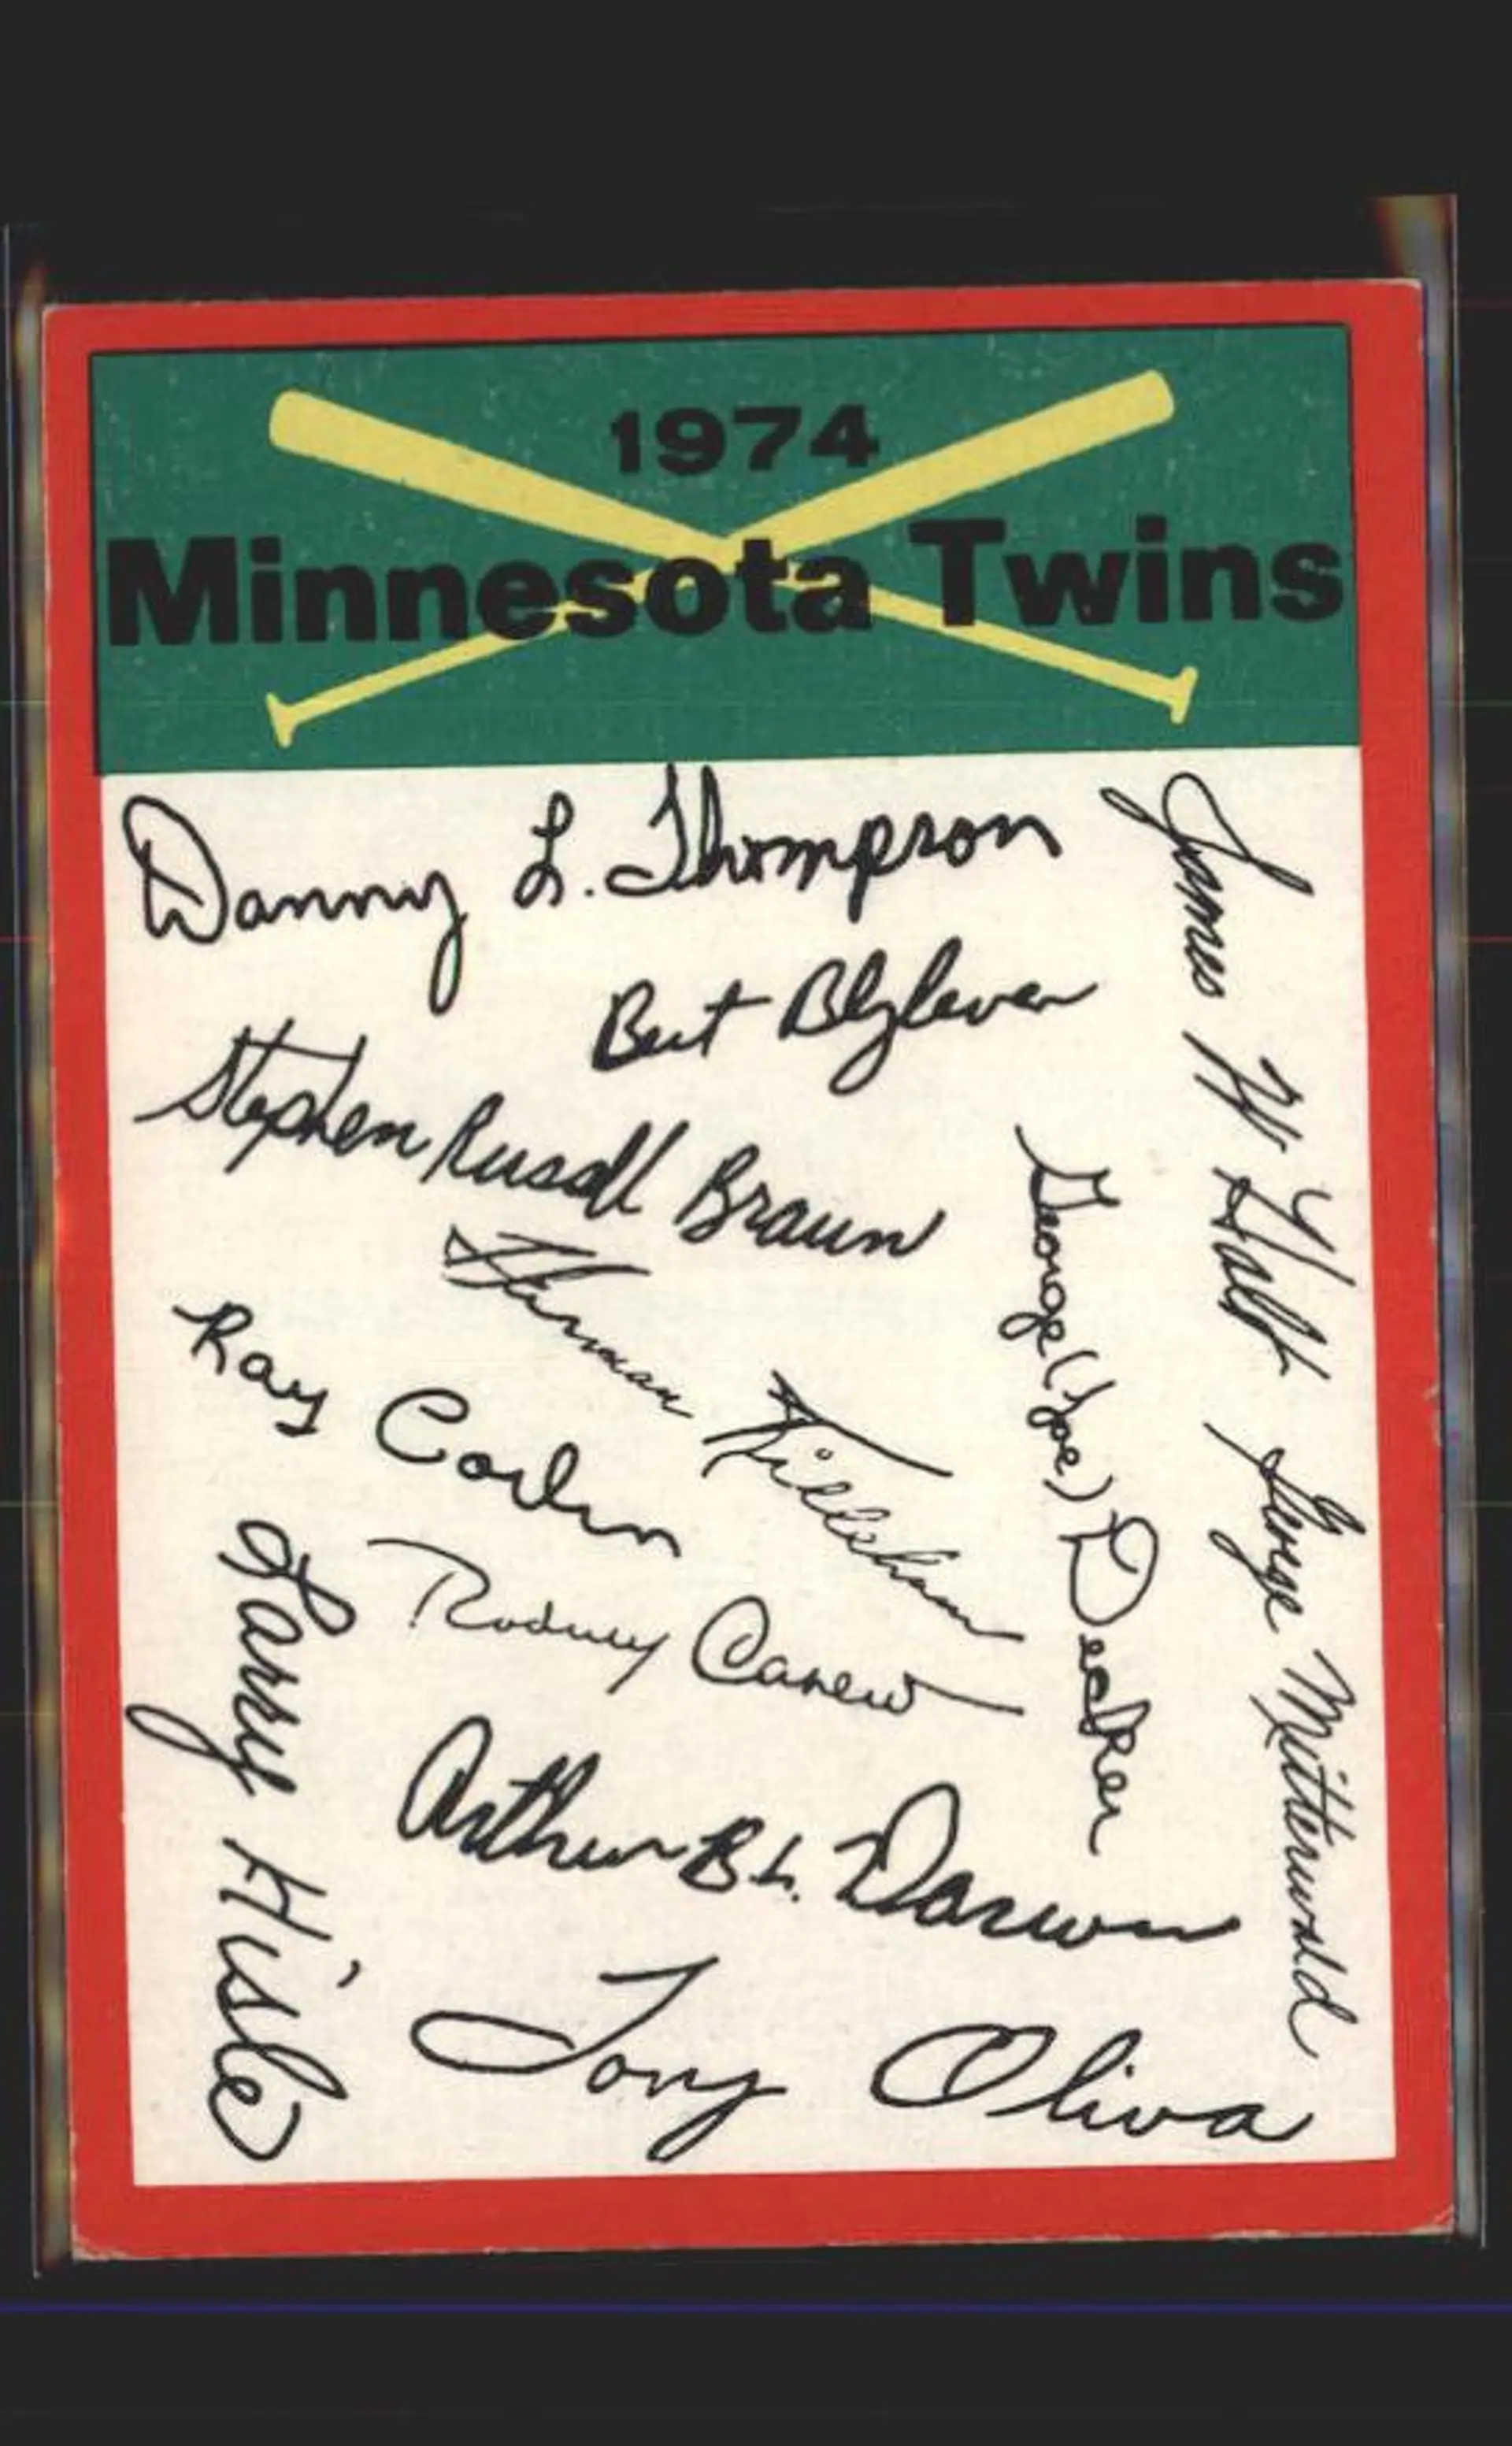 1974
Minnesota Twins
Danny L. Thompson
Bert Blyleven
Stephen Russell Braun
Harman Killebrew
Ray Corbin
Rodney Carew
Arthur B L. Darwin
Tony Oliva
Larry Hisle
George (Joe) Decker
James H. Holt
George Mitterwald